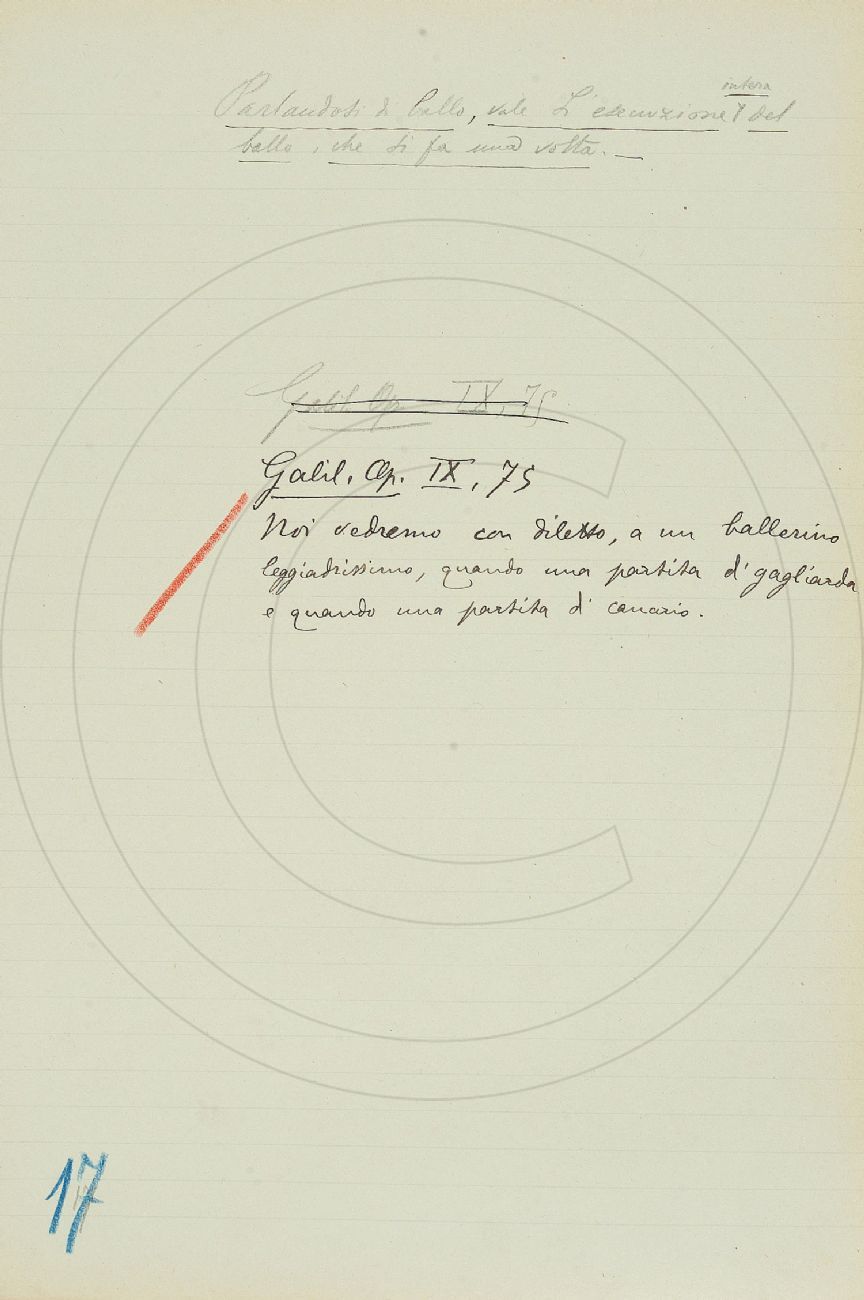 Parlandosi di ballo, vale L'esecuzione intera del
ballo, che si fa una volta. —
Galil. Op. IX, 75
Galil. Op. IX, 75
Noi vedremo con diletto, a un ballerino
leggiadrissimo, quando una partita d'gagliarda
e quando una partita di canario.
17